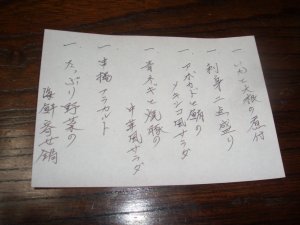 一 いわと大根の煮付
一 刺身二点盛り
一 アボカドと鮪の
メキシコ風サラダ
一 青ネギと焼豚の
中華風サラダ
一 串揚アラカルト
一 たっぷり野菜の
海鮮寄せ鍋